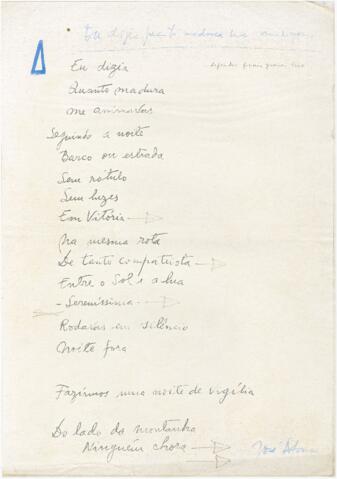 Eu dizia
Quanto madura
me animavas
Seguindo a noite
Barco ou estrada
Sem rótulo
Sem luzes
Em Vitória
Na mesma rota
De tanto compatriota
Entre o Sol e a lua
- Sereníssima -
Rodavas em silêncio
Noite fora
Fazíamos uma noite de vigília
Do lado da montanha
Ninguém chora
José